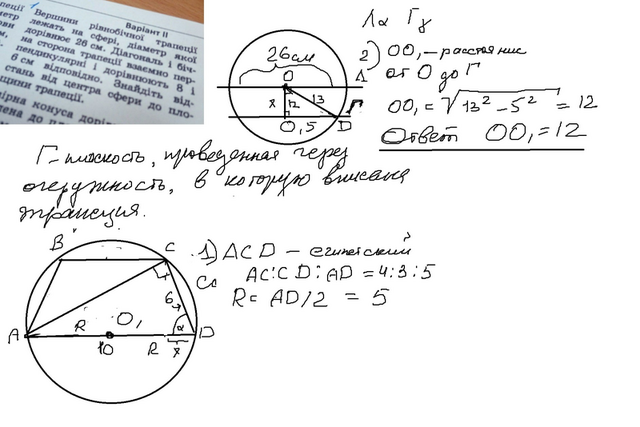 Варіант II
Вершини рівнобічної трапеції
лежать на сфері, діаметр якої
дорівнює 26 см. Діагональ і біч-
на сторона трапеції взаємно пер-
пендикулярні і дорівнюють 8 і
6 см відповідно. Знайдіть від-
стань від центра сфери до пло-
щини трапеції.
26см
O
x
12
13
O, 5
D
Г
2) OO, – расстояние
от O до Г
OO, = √13² – 5² = 12
Ответ OO, = 12
Г – плоскость, проведенная через
окружность, в которую вписана
трапеция.
B
C
A
D
R
O,
10
R
6
α
x
1) ACD – египетский
AC:CD:AD = 4:3:5
R = AD/2 = 5